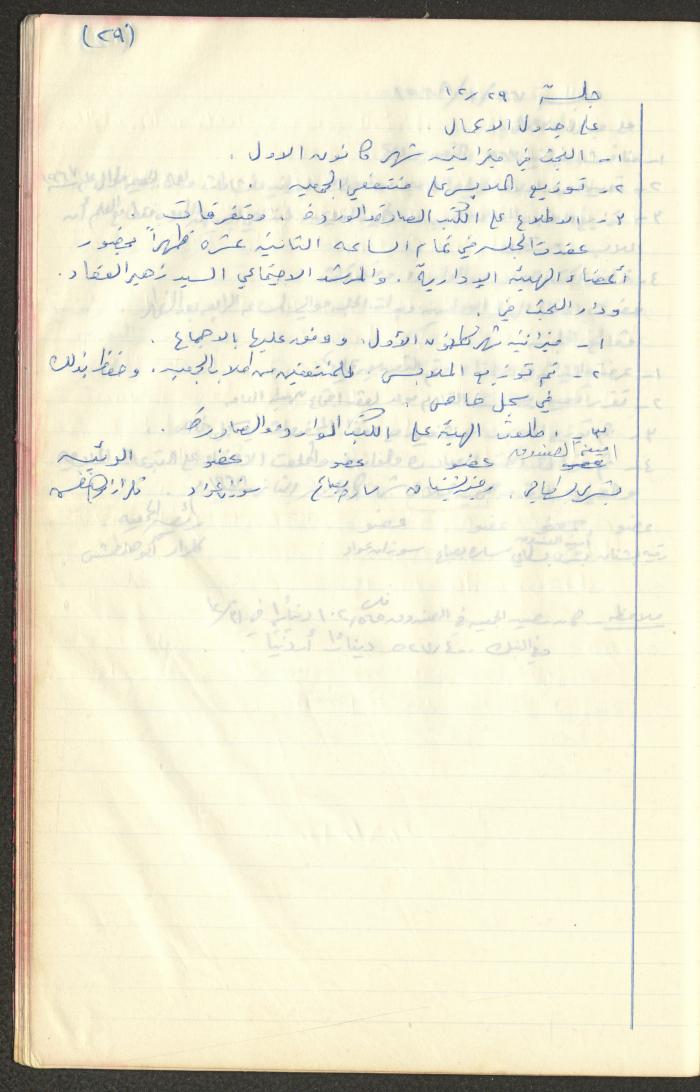 (٢٩)
جلسة ٢٩/١٢
على جدول الاعمال
١- البحث في ميزانية شهر كانون الاول .
٢- توزيع الملابس على منتفعي الجمعيه .
٣- الاطلاع على الكتب الصادره والوارده . ومتفرقات .
عقدت الجلسه في تمام الساعه الثانية عشره ظهراً بحضور
أعضاء الهيئه الإدارية . والمرشد الاجتماعي السيد زهير العقاد .
ودار البحث في .
١- ميزانية شهر كانون الأول . ووفق عليها بالاجماع .
٢- تم توزيع الملابس للمنتفعين من طلاب الجمعيه . وحفظ بذلك
في سجل خاص .
٣- اطلعت الهيئه على الكتب الوارده والصادره .
أمينة الصندوق عضو عضو عضو الرئيسه
بشرى سارة سوزان عواد